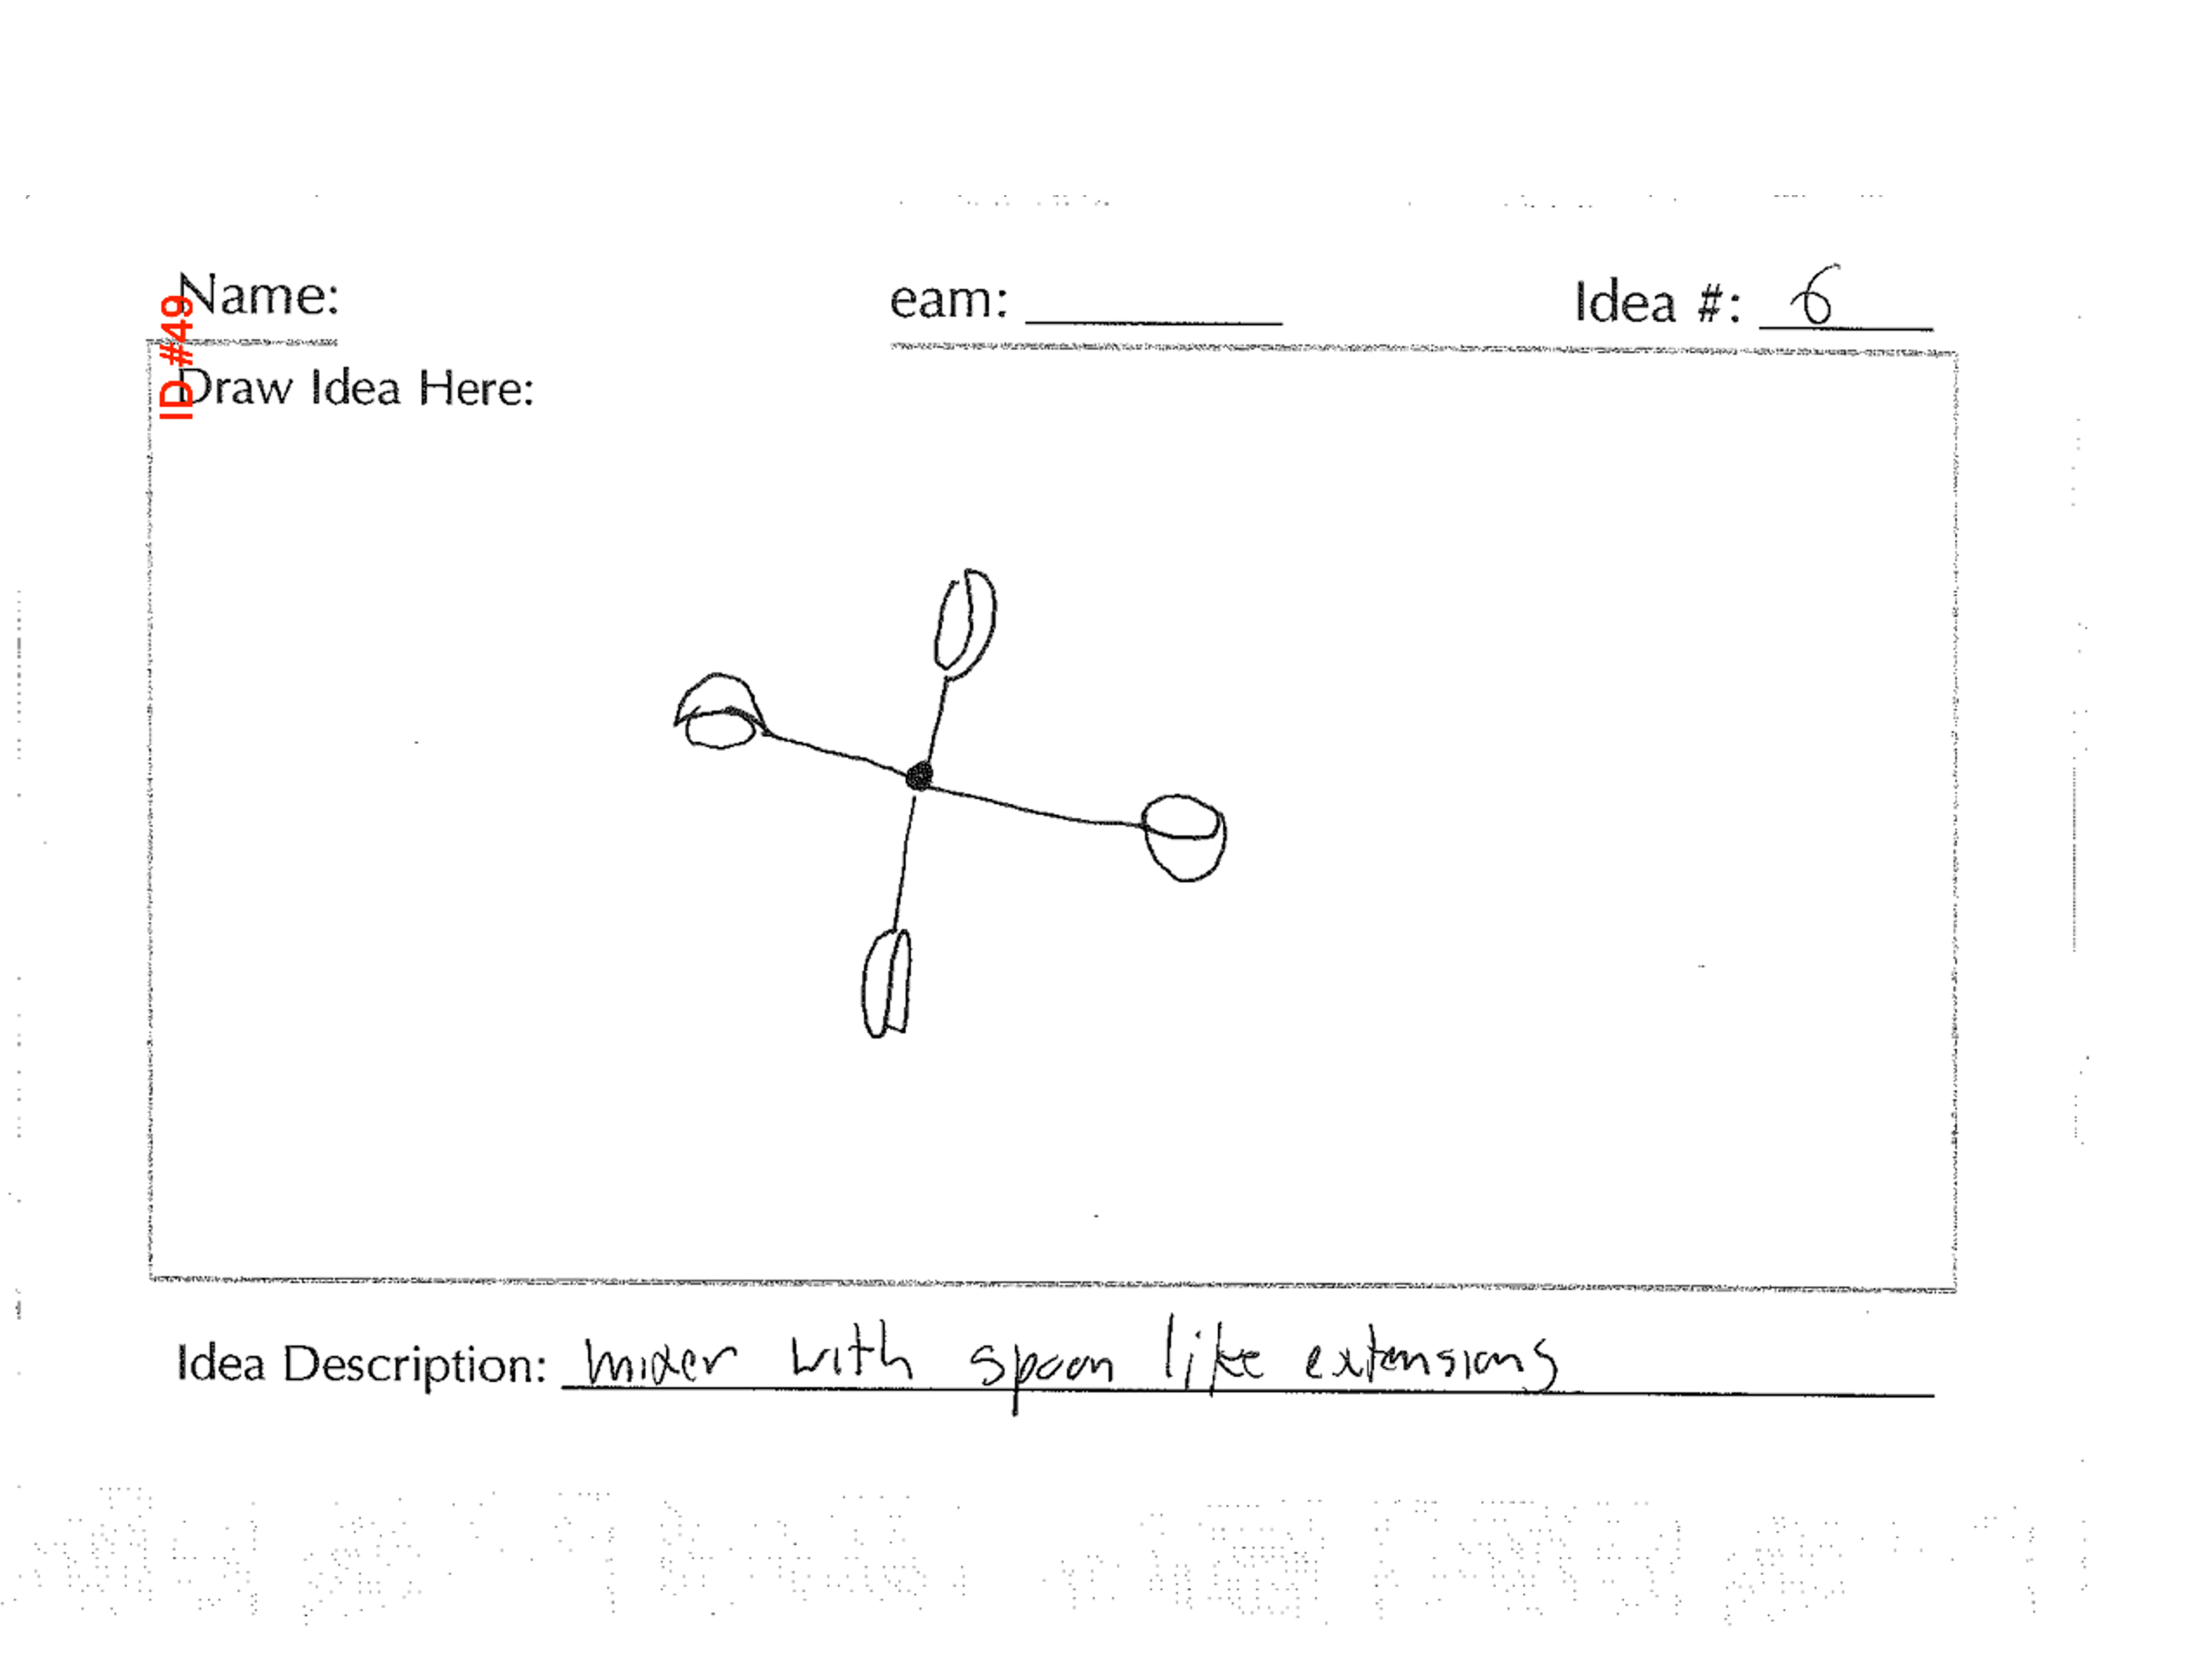 ID #49
Name: eam: Idea #: 6
Draw Idea Here:
Idea Description: mixer with spoon like extensions